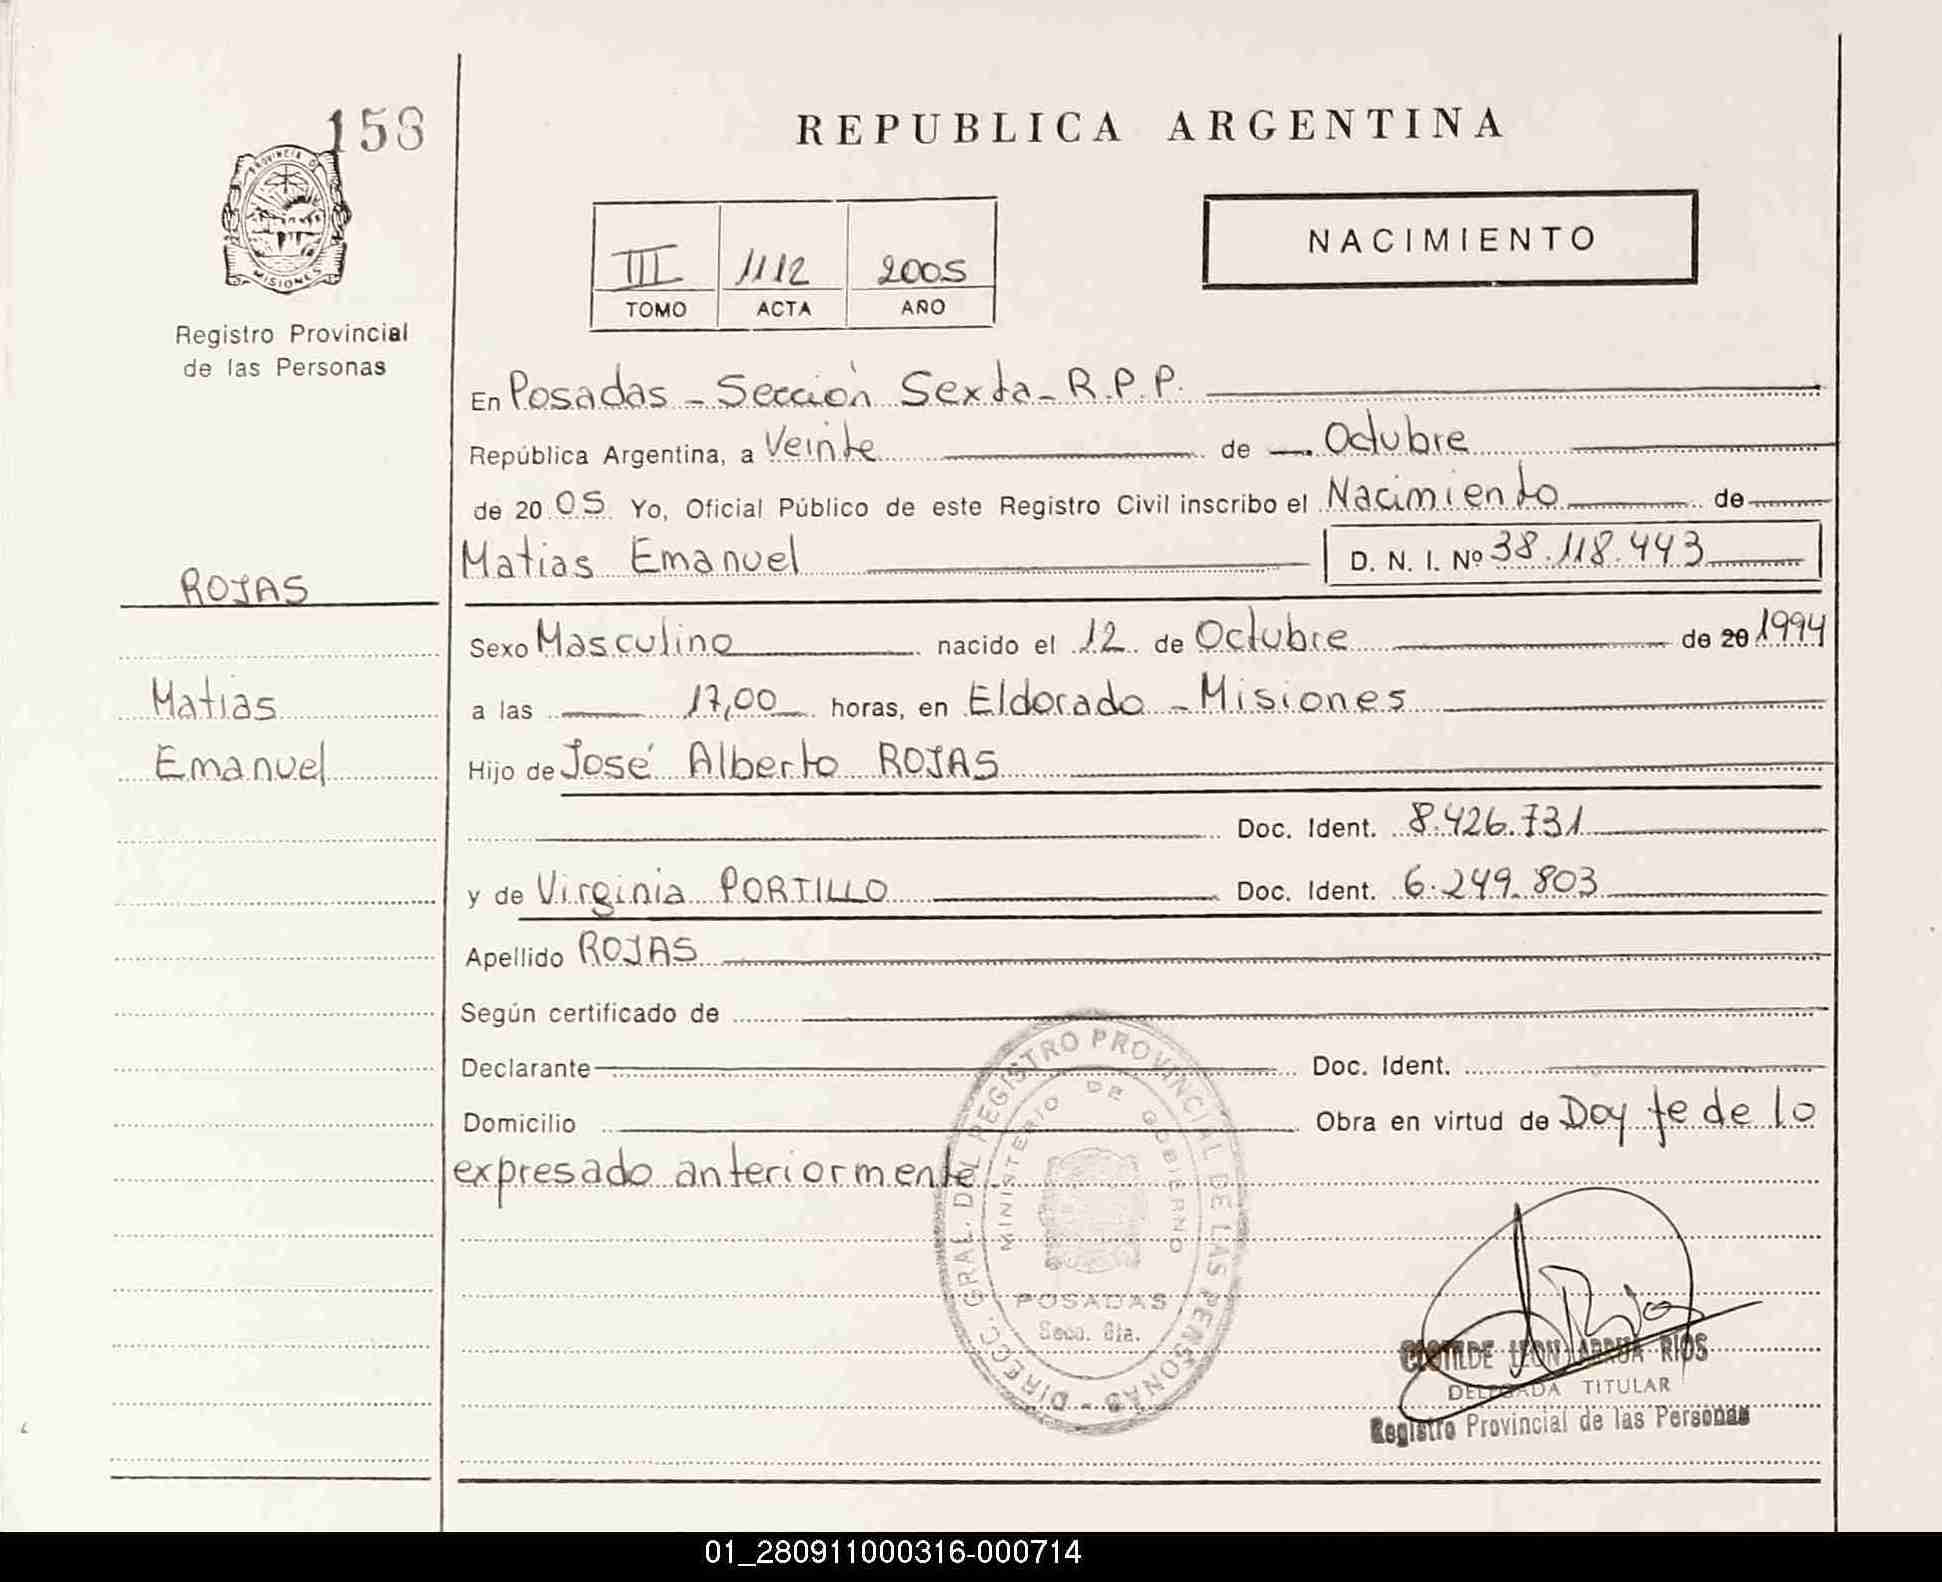 158
PROVINCIA D
MISIONES
Registro Provincial
de las Personas
REPUBLICA ARGENTINA
III 1112 2005
TOMO ACTA AÑO
NACIMIENTO
En Posadas - Sección Sexta - R.P.P.
República Argentina, a Veinte de Octubre
de 20 05 Yo, Oficial Público de este Registro Civil inscribo el Nacimiento de
Matias Emanuel D. N. I. Nº 38.118.443
ROJAS
Matias
Emanuel
Sexo Masculino nacido el 12 de Octubre de 20 1994
a las 17,00 horas, en Eldorado - Misiones
Hijo de José Alberto ROJAS
Doc. Ident. 8.426.731
y de Virginia PORTILLO Doc. Ident. 6.249.803
Apellido ROJAS
Según certificado de
Declarante Doc. Ident.
Domicilio Obra en virtud de Doy fe de lo
expresado anteriormente
DIRECC. GRAL. DEL REGISTRO PROVINCIAL DE LAS PERSONAS -
MINISTERIO DE GOBIERNO
POSADAS
Secc. 6ta.
CLOTILDE LEONI ARRUA RIOS
DELEGADA TITULAR
Registro Provincial de las Personas
01_280911000316-000714